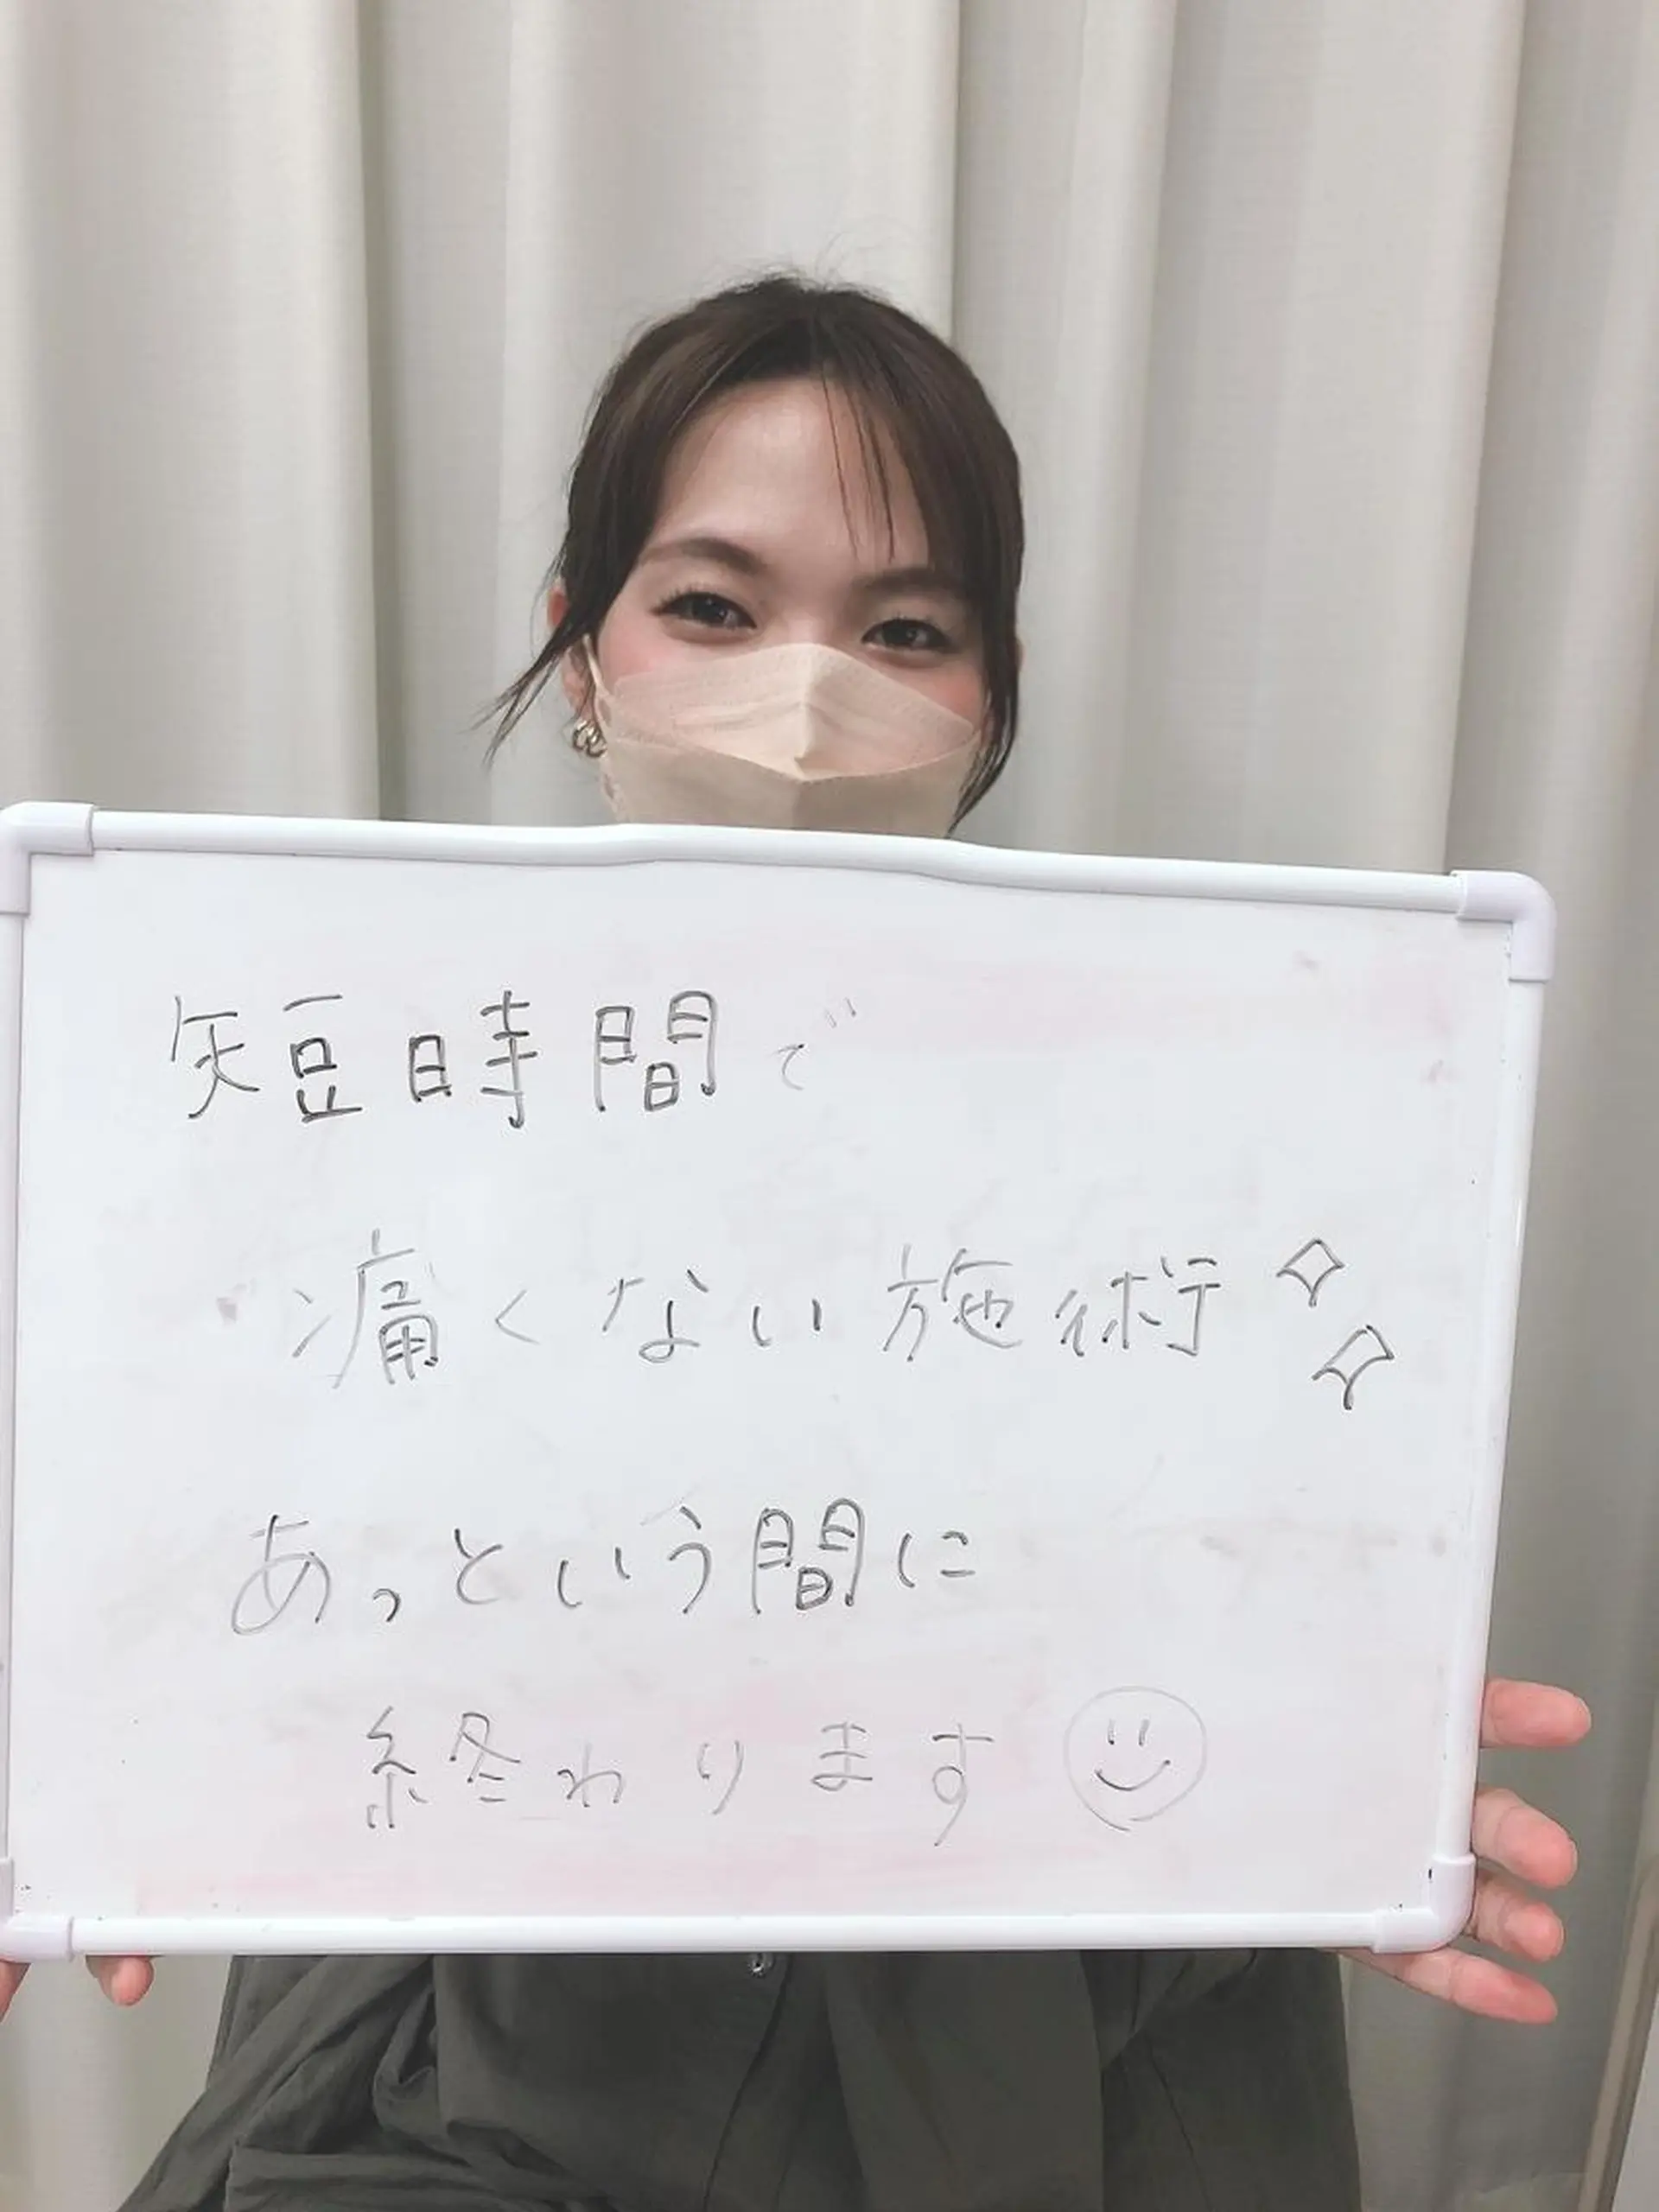 短時間で
痛くない施術
あっという間に
終わります